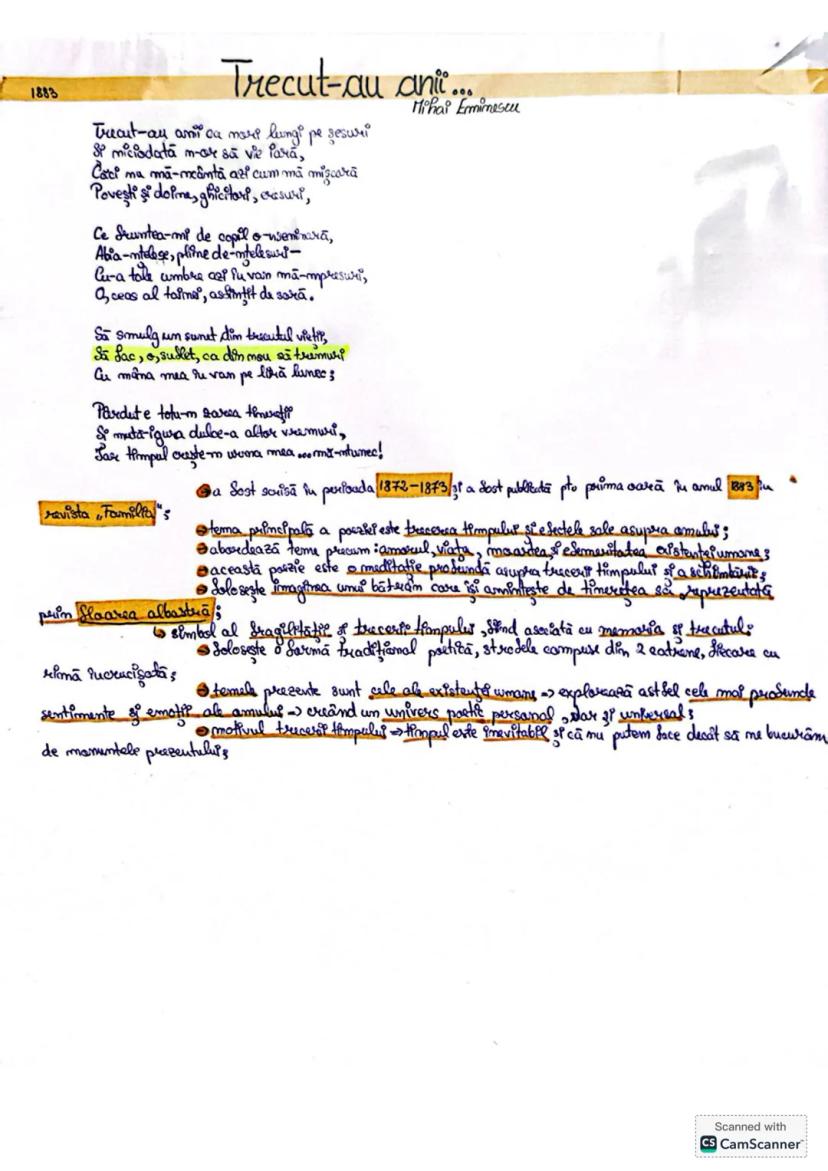 1883
Trecut-au anii...
Mihai Eminescu
Trecut-au anii ca nori lungi pe șesuri
Și niciodată n-or să vie iară,
Căci nu mă-ncântă azi cum mă mișcară
Povești și doine, ghicitori, eresuri,
Ce fruntea-mi de copil o-nseninară,
Abia-nțelese, pline de-nțelesuri—
Cu-a tale umbre azi în van mă-mpresuri,
O, ceas al tainei, asfințit de sară.
Să smulg un sunet din trecutul vieții,
Să fac, o, suflet, ca din nou să tremuri
Cu mâna mea în van pe liră lunec;
Pierdut e totu-n zarea tinereții
Și mută-i gura dulce-a altor vremuri,
Iar timpul crește-n urma mea...mă-ntunec!
a fost scrisă în perioada 1872-1873 și a fost publicată ptr prima oară în anul 1883 în
revista „Familia";
tema principală a poeziei este trecerea timpului și efectele sale asupra omului;
abordează teme precum: amorul, viața, moartea și efemeritatea existenței umane;
această poezie este o meditație profundă asupra trecerii timpului și a schimbării;
folosește imaginea unui bătrân care își amintește de tinerețea sa, reprezentată
prin floarea albastră;
↳ simbol al fragilității și trecerii timpului, fiind asociată cu memoria și trecutul;
folosește o formă tradițional poetică, strofele compuse din 2 catrene, fiecare cu
rimă încrucișată;
temele prezente sunt cele ale existenței umane => explorează astfel cele mai profunde
sentimente și emoții ale omului => creând un univers poetic personal, dar și universal;
motivul trecerii timpului => timpul este inevitabil și că nu putem face decât să ne bucurăm
de momentele prezentului;
Scanned with
CS CamScanner